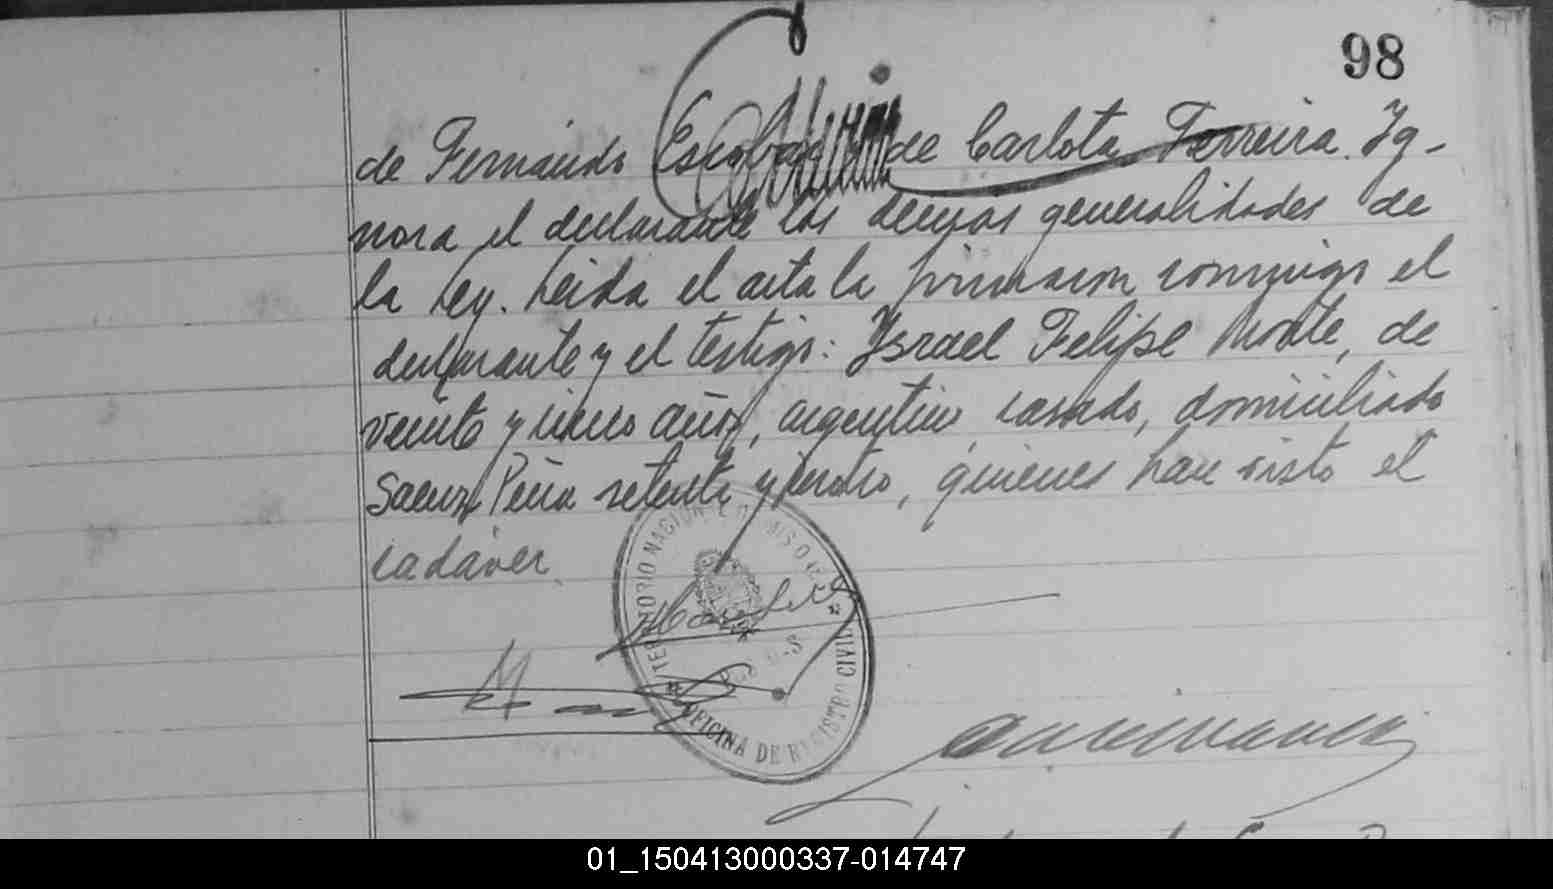 98
de Fernando Escobar y de Carlota Ferreira. Ig-
nora el declarante las demas generalidades de
la ley. Leida el acta la firmaron conmigo el
declarante y el testigo: Israel Felipe Monte, de
veinte y cinco años, argentino, casado, domiciliado
Saenz Peña setenta y cuatro, quienes han visto el
cadáver.
TERRITORIO NACIONAL DE MISIONES
OFICINA DE REGISTRO CIVIL
01_150413000337-014747